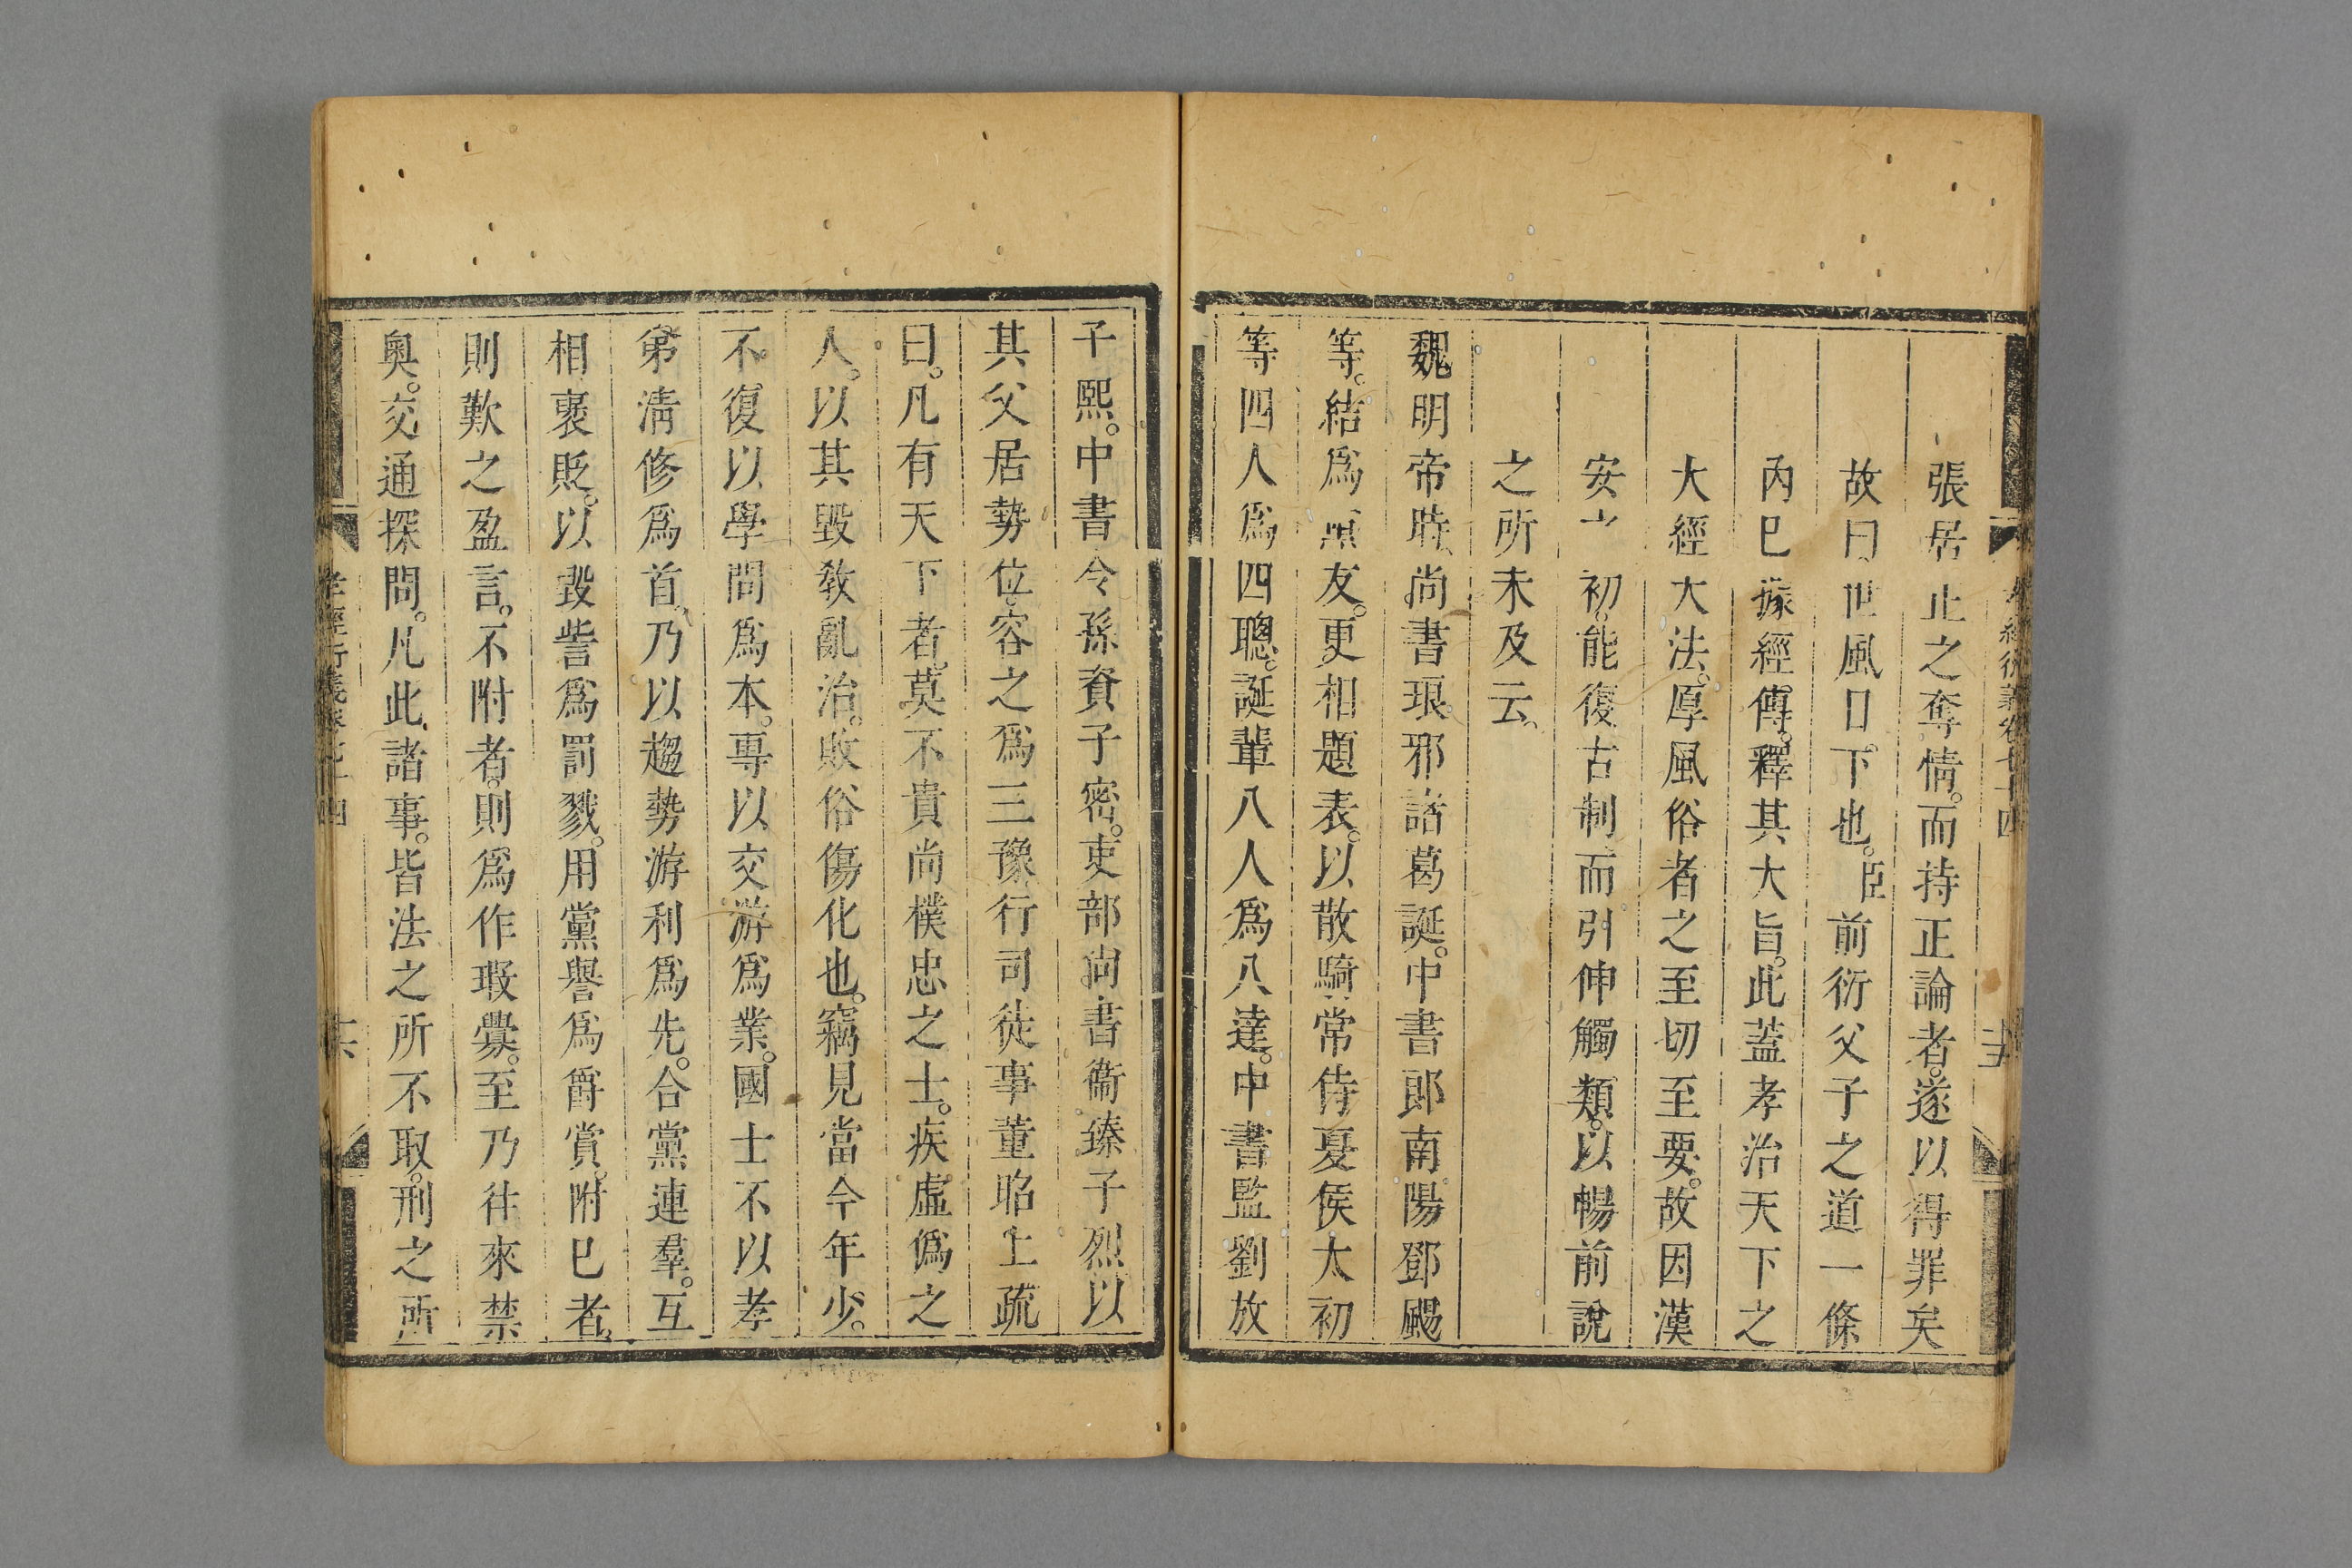 張居止之奪情。而持正論者。遂以得罪矣
故曰世風日下也。臣前衍父子之道一條
內已據經傳。釋其大旨。此蓋孝治天下之
大經大法。厚風俗者之至切至要。故因漢
安之初。能復古制而引伸觸類。以暢前說
之所未及云、
魏明帝時、尚書琅邪諸葛誕。中書郎南陽鄧颺
等。結爲黨友。更相題表。以散騎常侍夏侯太初
等四人爲四聰。誕輩八人爲八達。中書監劉放
子熙。中書令孫資子密。吏部尚書衞臻子烈以
其父居勢位。容之爲三豫。行司徒事董昭上疏
曰。凡有天下者。莫不貴尚樸忠之士。疾虛僞之
人。以其毀敎亂治。敗俗傷化也。竊見當今年少。
不復以學問爲本。專以交游爲業。國士不以孝
弟淸修爲首。乃以趨勢游利爲先。合黨連羣。互
相褒貶。以毀訾爲罰戮。用黨譽爲爵賞。附已者。
則歎之盈言。不附者。則爲作瑕釁。至乃往來禁
奧。交通探問。凡此諸事。皆法之所不取。刑之所
孝經衍義卷七十四
十六